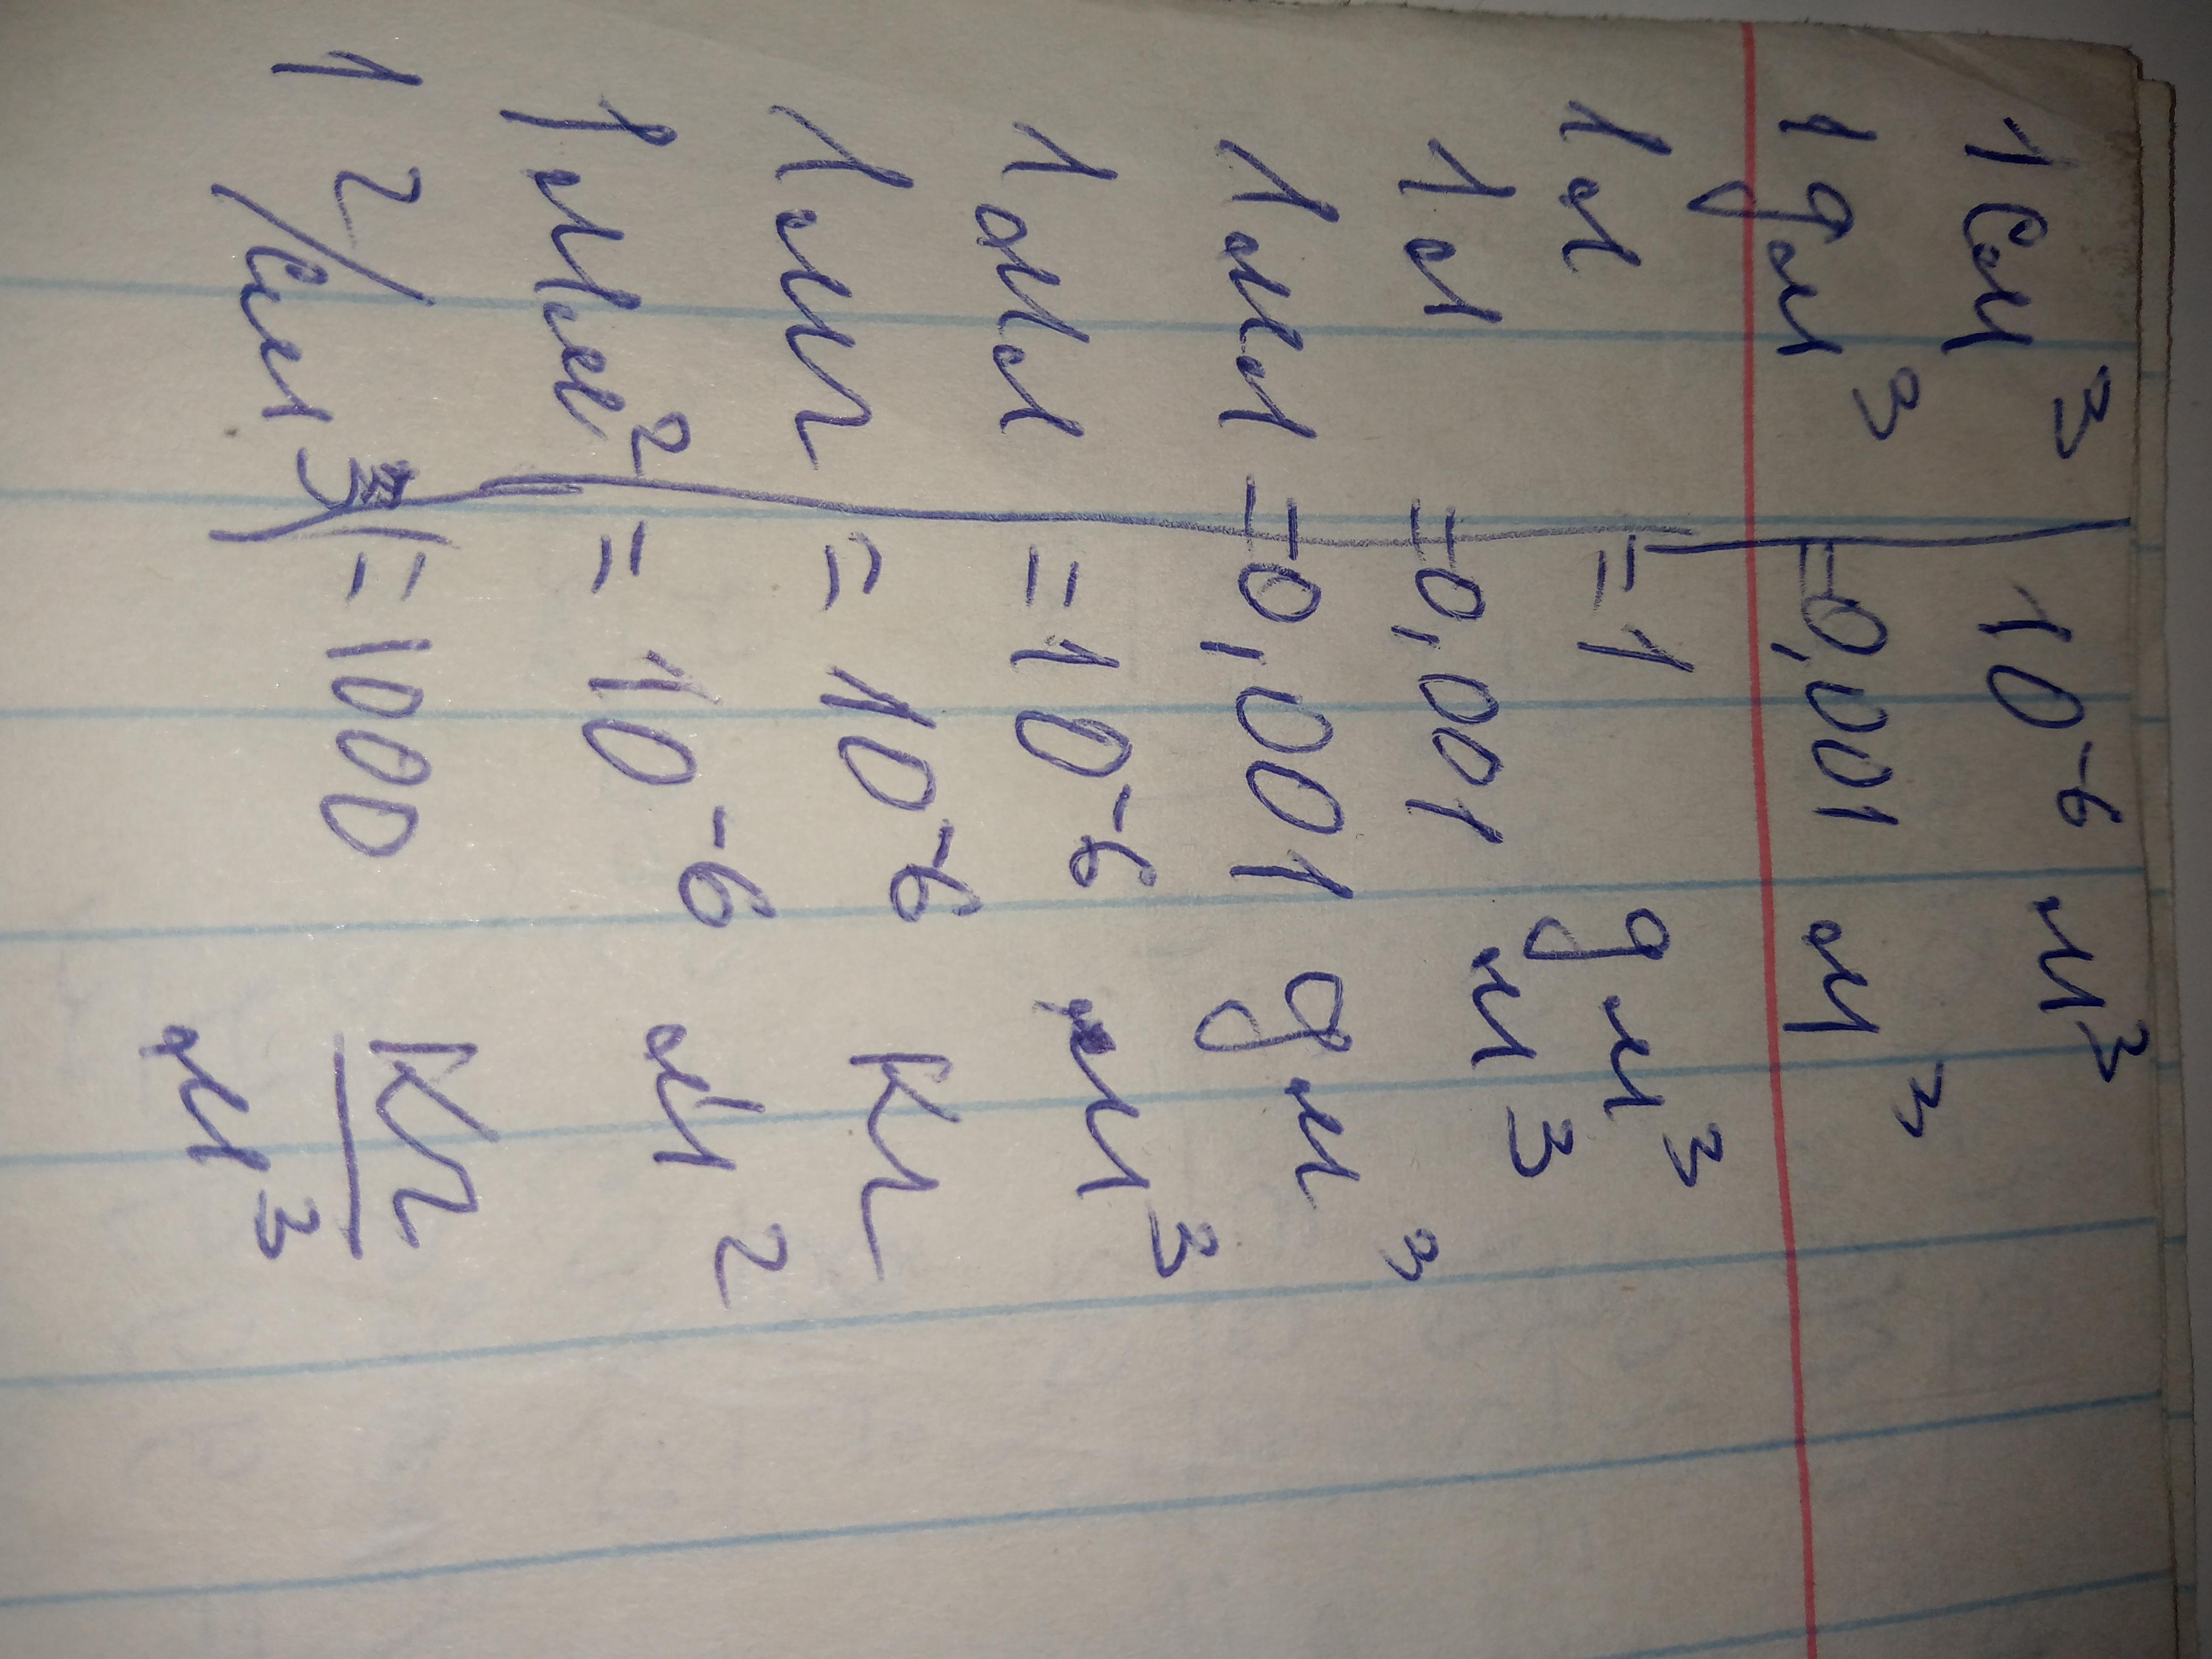 1 см³ 10⁻⁶ м³
1 дм³ = 0,001 м³
1 л = 1 дм³
1 л = 0,001 м³
1 мл = 0,001 дм³
1 мл = 10⁻⁶ м³
1 мг = 10⁻⁶ кг
1 мм² = 10⁻⁶ м²
1 г/см³ = 1000 кг/м³